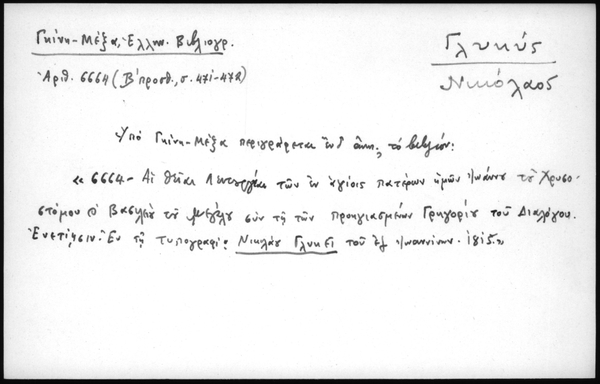 Γκίνη-Μέξα, Ἑλλην. Βιβλιογρ.
Γλυκύς
Νικόλαος
Ἀριθ. 6664 (Β΄ προσθ., σ. 471-472)
Ὑπὸ Γκίνη-Μέξα περιγράφεται τὸ βιβλίον:
« 6664 - Αἱ θεῖαι Λειτουργίαι τῶν ἐν ἁγίοις πατέρων ἡμῶν Ἰωάννου τοῦ Χρυσο-
στόμου Βασιλείου τοῦ Μεγάλου σὺν τῇ τῶν προηγιασμένων Γρηγορίου τοῦ Διαλόγου.
Ἐνετίῃσιν. Ἐν τῇ τυπογραφίᾳ Νικολάου Γλυκεῖ τοῦ ἐξ Ἰωαννίνων. 1815.»